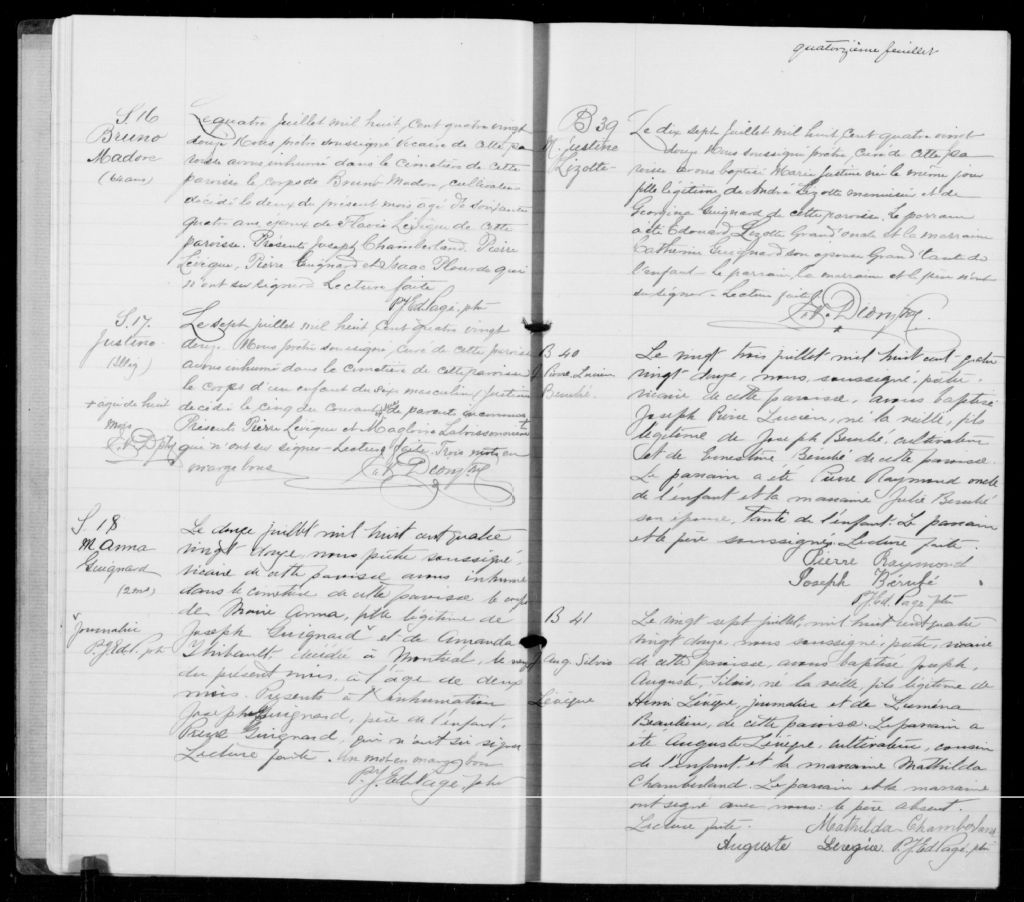 quatorzième feuillet
S. 16
Bruno
Madore
(64 ans)
Le quatre juillet mil huit cent quatre vingt
douze Nous prêtre soussigné vicaire de cette pa
roisse avons inhumé dans le cimetière de cette
paroisse le corps de Bruno Madore, cultivateur
décédé le deux du présent mois agé de soixante
quatre ans, époux de Flavie Lévêque de cette
paroisse. Présents Joseph Chamberland, Pierre
Levêque, Pierre Guignard et Isaac Plourde qui
n'ont su signer. Lecture faite
P.J.Ed. Pagé, ptre
S. 17.
Justine
(Illég)
+ agé de huit
mois
Le sept juillet mil huit cent quatre vingt
douze. Nous prêtre soussigné, curé de cette paroisse
avons inhumé dans le cimetière de cette paroisse
le corps d'un enfant du sexe masculin (Justin
décédé le cinq du courant né de parents inconnus
Présents Pierre Levêque et Magloire
qui n'ont su signer - Lecture faite. Trois mots en
marge bons
S 18
M. Anna
Guignard
(2 ms)
"Journalier
P.J.Ed.P. ptre
Le douze juillet mil huit cent quatre
vingt douze, nous prêtre soussigné,
vicaire de cette paroisse avons inhumé
dans le cimetière de cette paroisse le corps
de Marie Anna, fille légitime de
Joseph Guignard " et de Amanda
Thibault, décédée à Montréal, le neuf
du présent mois, à l'âge de deux
mois. Présents à l'inhumation
Joseph Guignard, père de l'enfant,
Pierre Guignard, qui n'ont su signer
Lecture faite. Un mot en marge bon
P.J. Ed. Pagé, ptre
B 39
M. Justine
Lizotte
Le dix sept juillet mil huit cent quatre vingt
douze Nous soussigné prêtre, curé de cette pa
roisse avons baptisé Marie Justine née le même jour
fille légitime de André Lizotte menuisier et de
Georgina Guignard de cette paroisse. Le parrain
a été Edouard Lizotte Grand'oncle et la marraine
Catherine Guignard son épouse Grand'tante de
l'enfant - Le parrain, la marraine et le père n'ont
su signer - Lecture faite
B 40
J. Pierre Lucien
Berubé.
Le vingt trois juillet mil huit cent quatre
vingt douze, nous, soussigné, prêtre,
vicaire de cette paroisse, avons baptisé
Joseph Pierre Lucien, né la veille, fils
légitime de Joseph Berubé, cultivateur
et de Ernestine Berubé de cette paroisse.
Le parrain a été Pierre Raymond oncle
de l'enfant et la marraine Julie Berubé
son épouse, tante de l'enfant. Le parrain
et le père soussignés. Lecture faite.
Pierre Raymond
Joseph Bérubé
P.J.Ed. Pagé ptre
B 41
J. Aug. Silvio
Lévêque
Le vingt sept juillet, mil huit cent quatre
vingt douze, nous soussigné, prêtre, vicaire
de cette paroisse, avons baptisé Joseph,
Auguste, Silvio, né la veille, fils légitime de
Henri Lévêque, journalier et de Luména
Beaulieu, de cette paroisse. Le parrain a
été Auguste Lévêque, cultivateur, cousin
de l'enfant, et la marraine Mathilda
Chamberland. Le parrain et la marraine
ont signé avec nous: le père absent.
Lecture faite.
Mathilda Chamberland
Auguste Leveque P.J.Ed Pagé, ptre